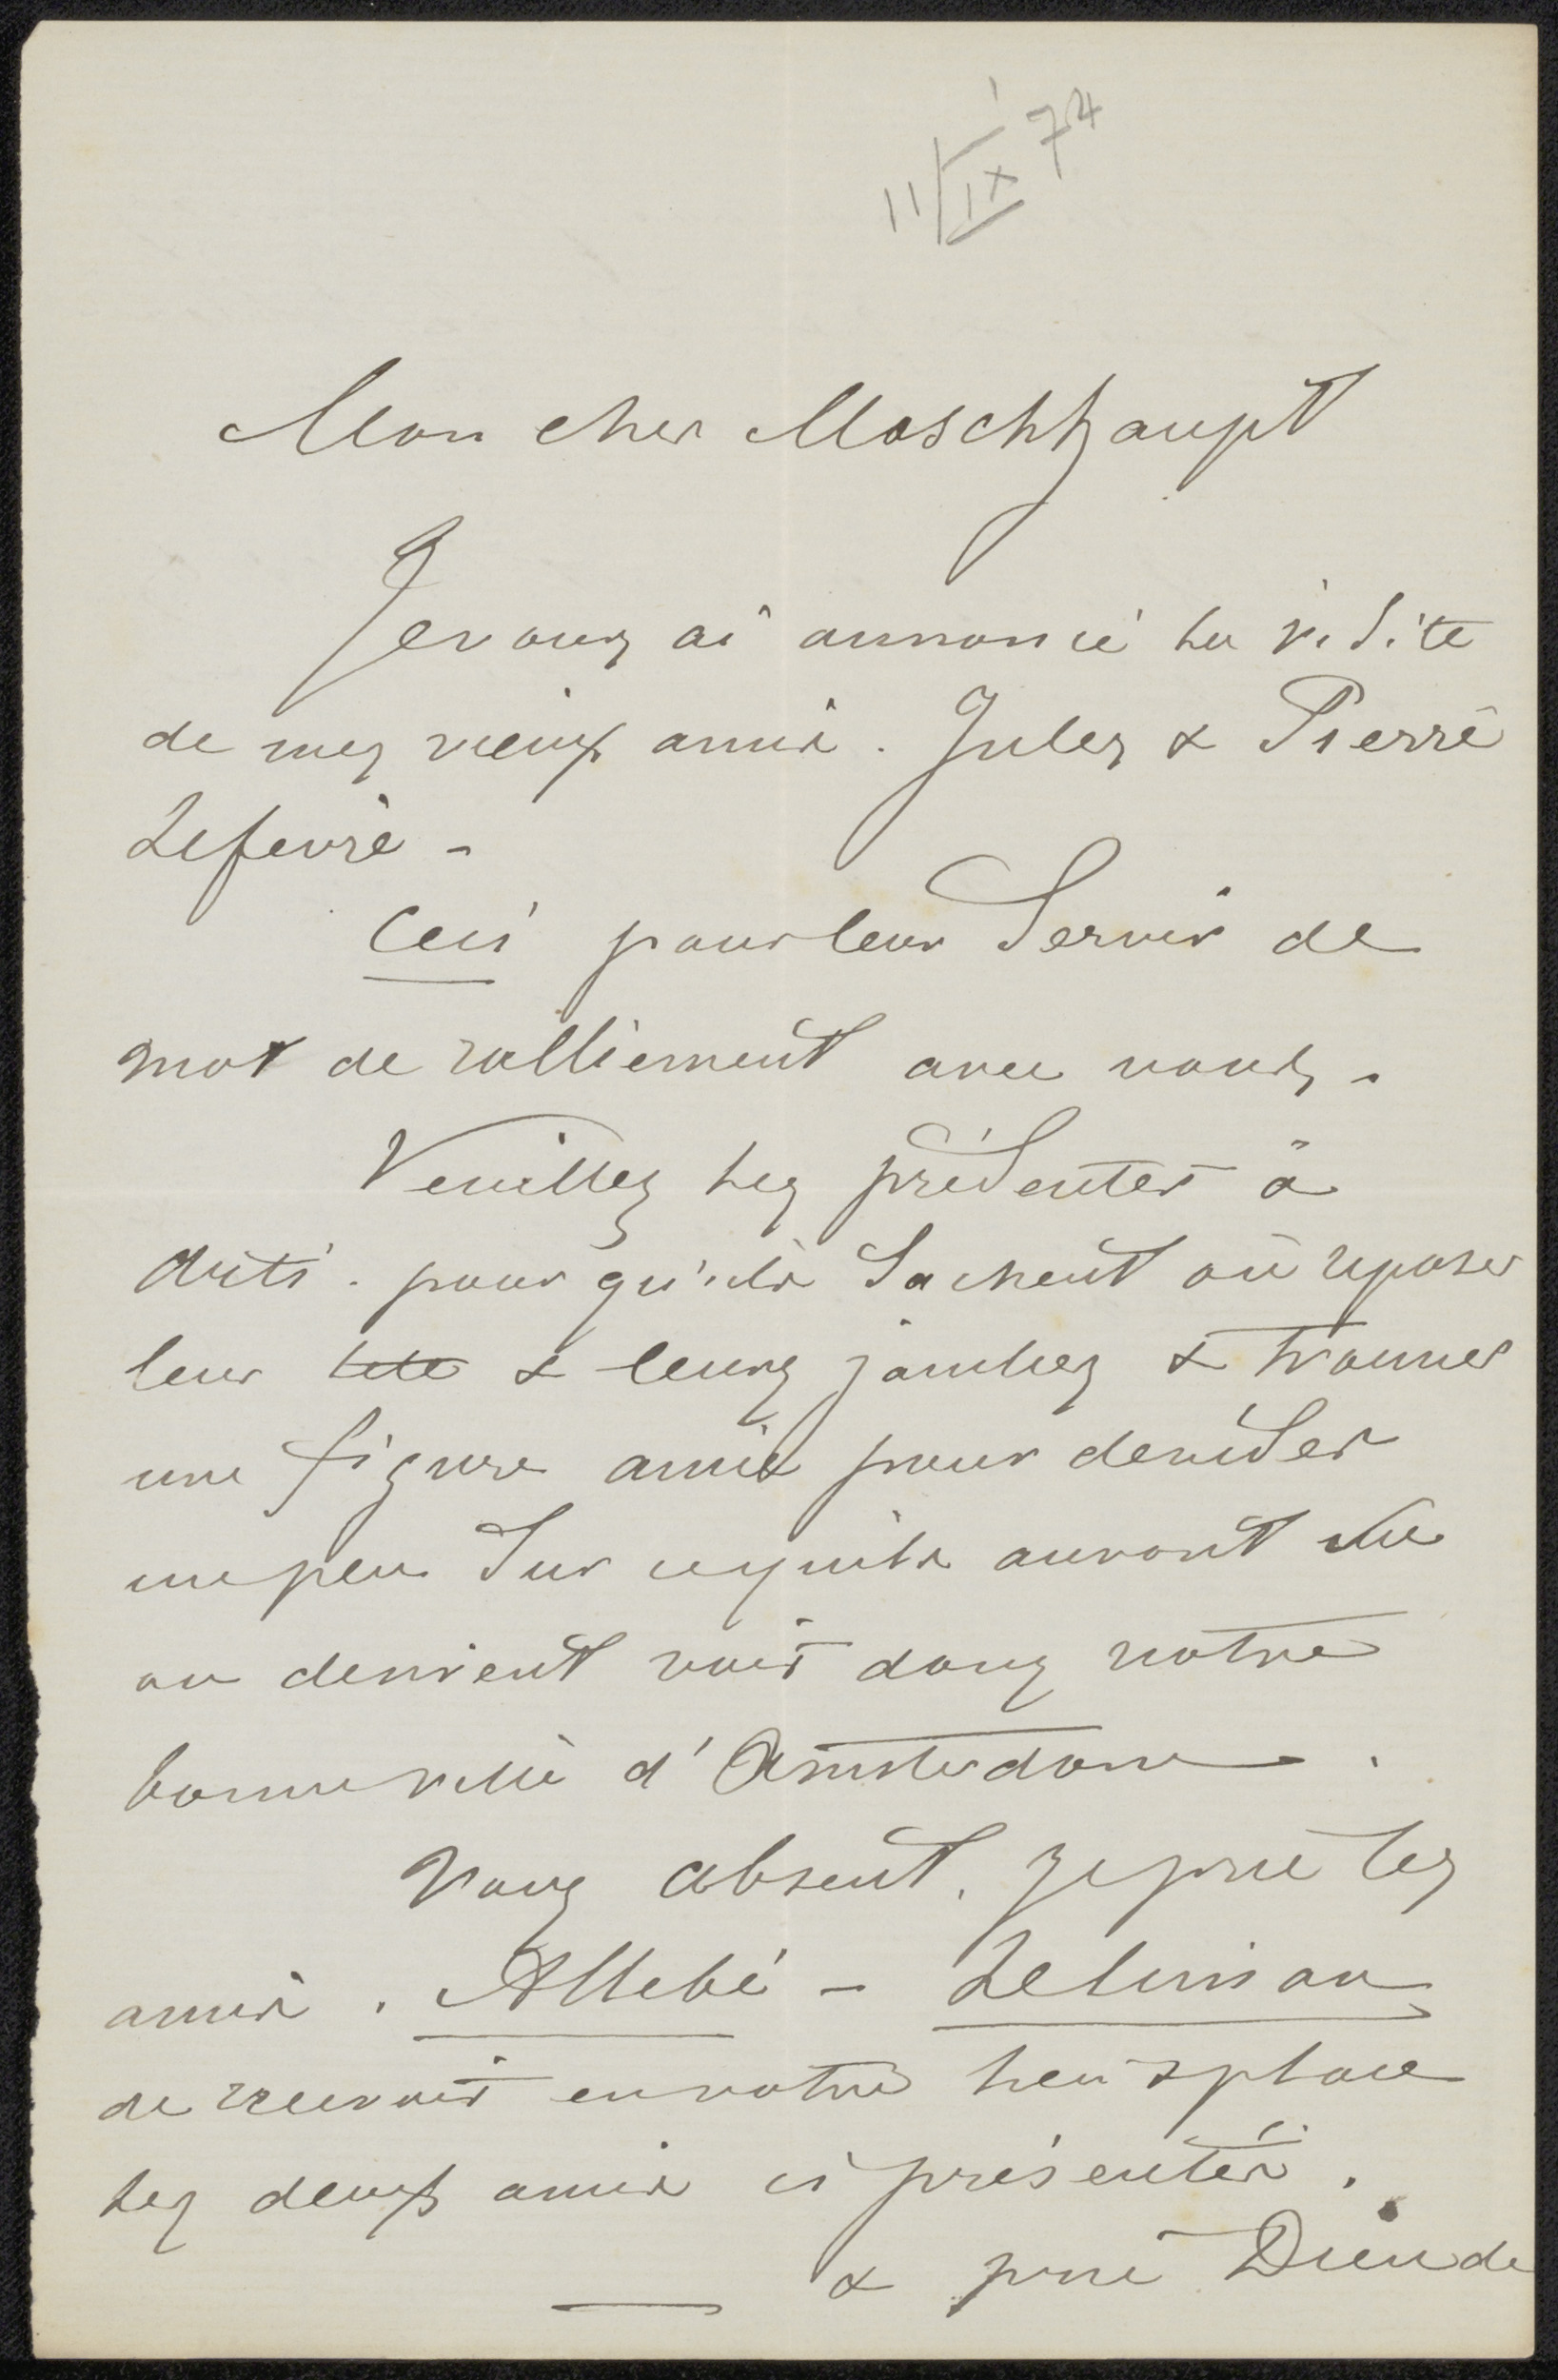 11/IX 74
Mon cher Moschhaupt
Je vous ai annoncé la visite
de mes vieux amis. Jules & Pierre
Lefevre -
Ceci pour leur Servir de
mot de ralliement avec vous.
Veuillez les présenter à
Arti. pour qu'ils Sachent où reposer
leur tete & leurs jambes & trouver
une figure amie pour deviser
un peu Sur ce qu'ils auront vu
on devient voir dans votre
bonne ville d'Amsterdam.
Vous absent, je prie les
amis. Allebé -
de recevoir en votre lieu & place
les deux amis ci présentés.
& prie Dieu de